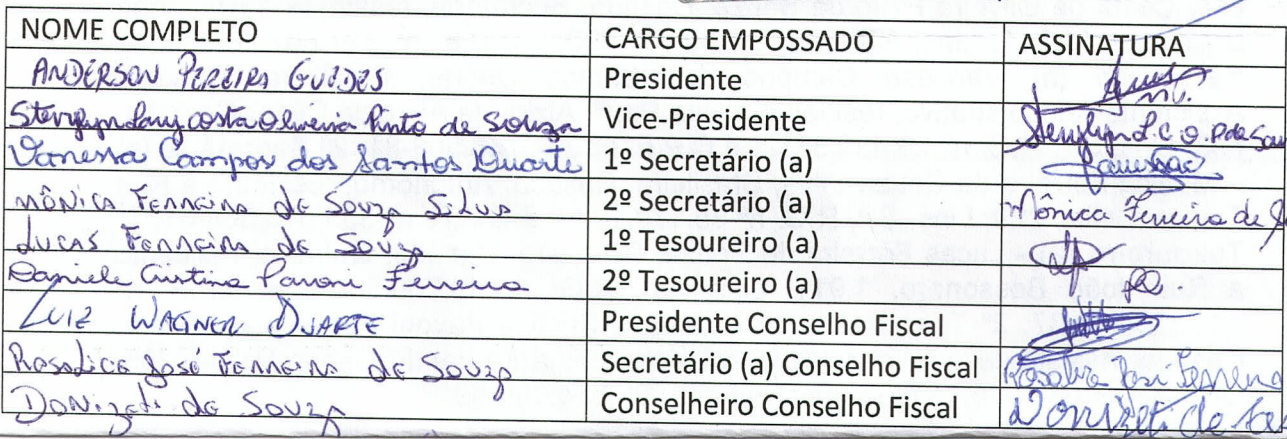 NOME COMPLETO CARGO EMPOSSADO ASSINATURA
ANDERSON PEREIRA GUEDES Presidente
costa Oliveira Pinto de Souza Vice-Presidente
Vanessa Campos dos Santos Duarte 1º Secretário (a)
MÔNICA FERREIRA de Souza Silva 2º Secretário (a) Mônica Ferreira de
Lucas Ferreira de Souza 1º Tesoureiro (a)
Daniele Cristina Pavoni Ferreira 2º Tesoureiro (a)
LUIZ WAGNER DUARTE Presidente Conselho Fiscal
José Ferreira de Souza Secretário (a) Conselho Fiscal
Donizeti de Souza Conselheiro Conselho Fiscal Donizeti de